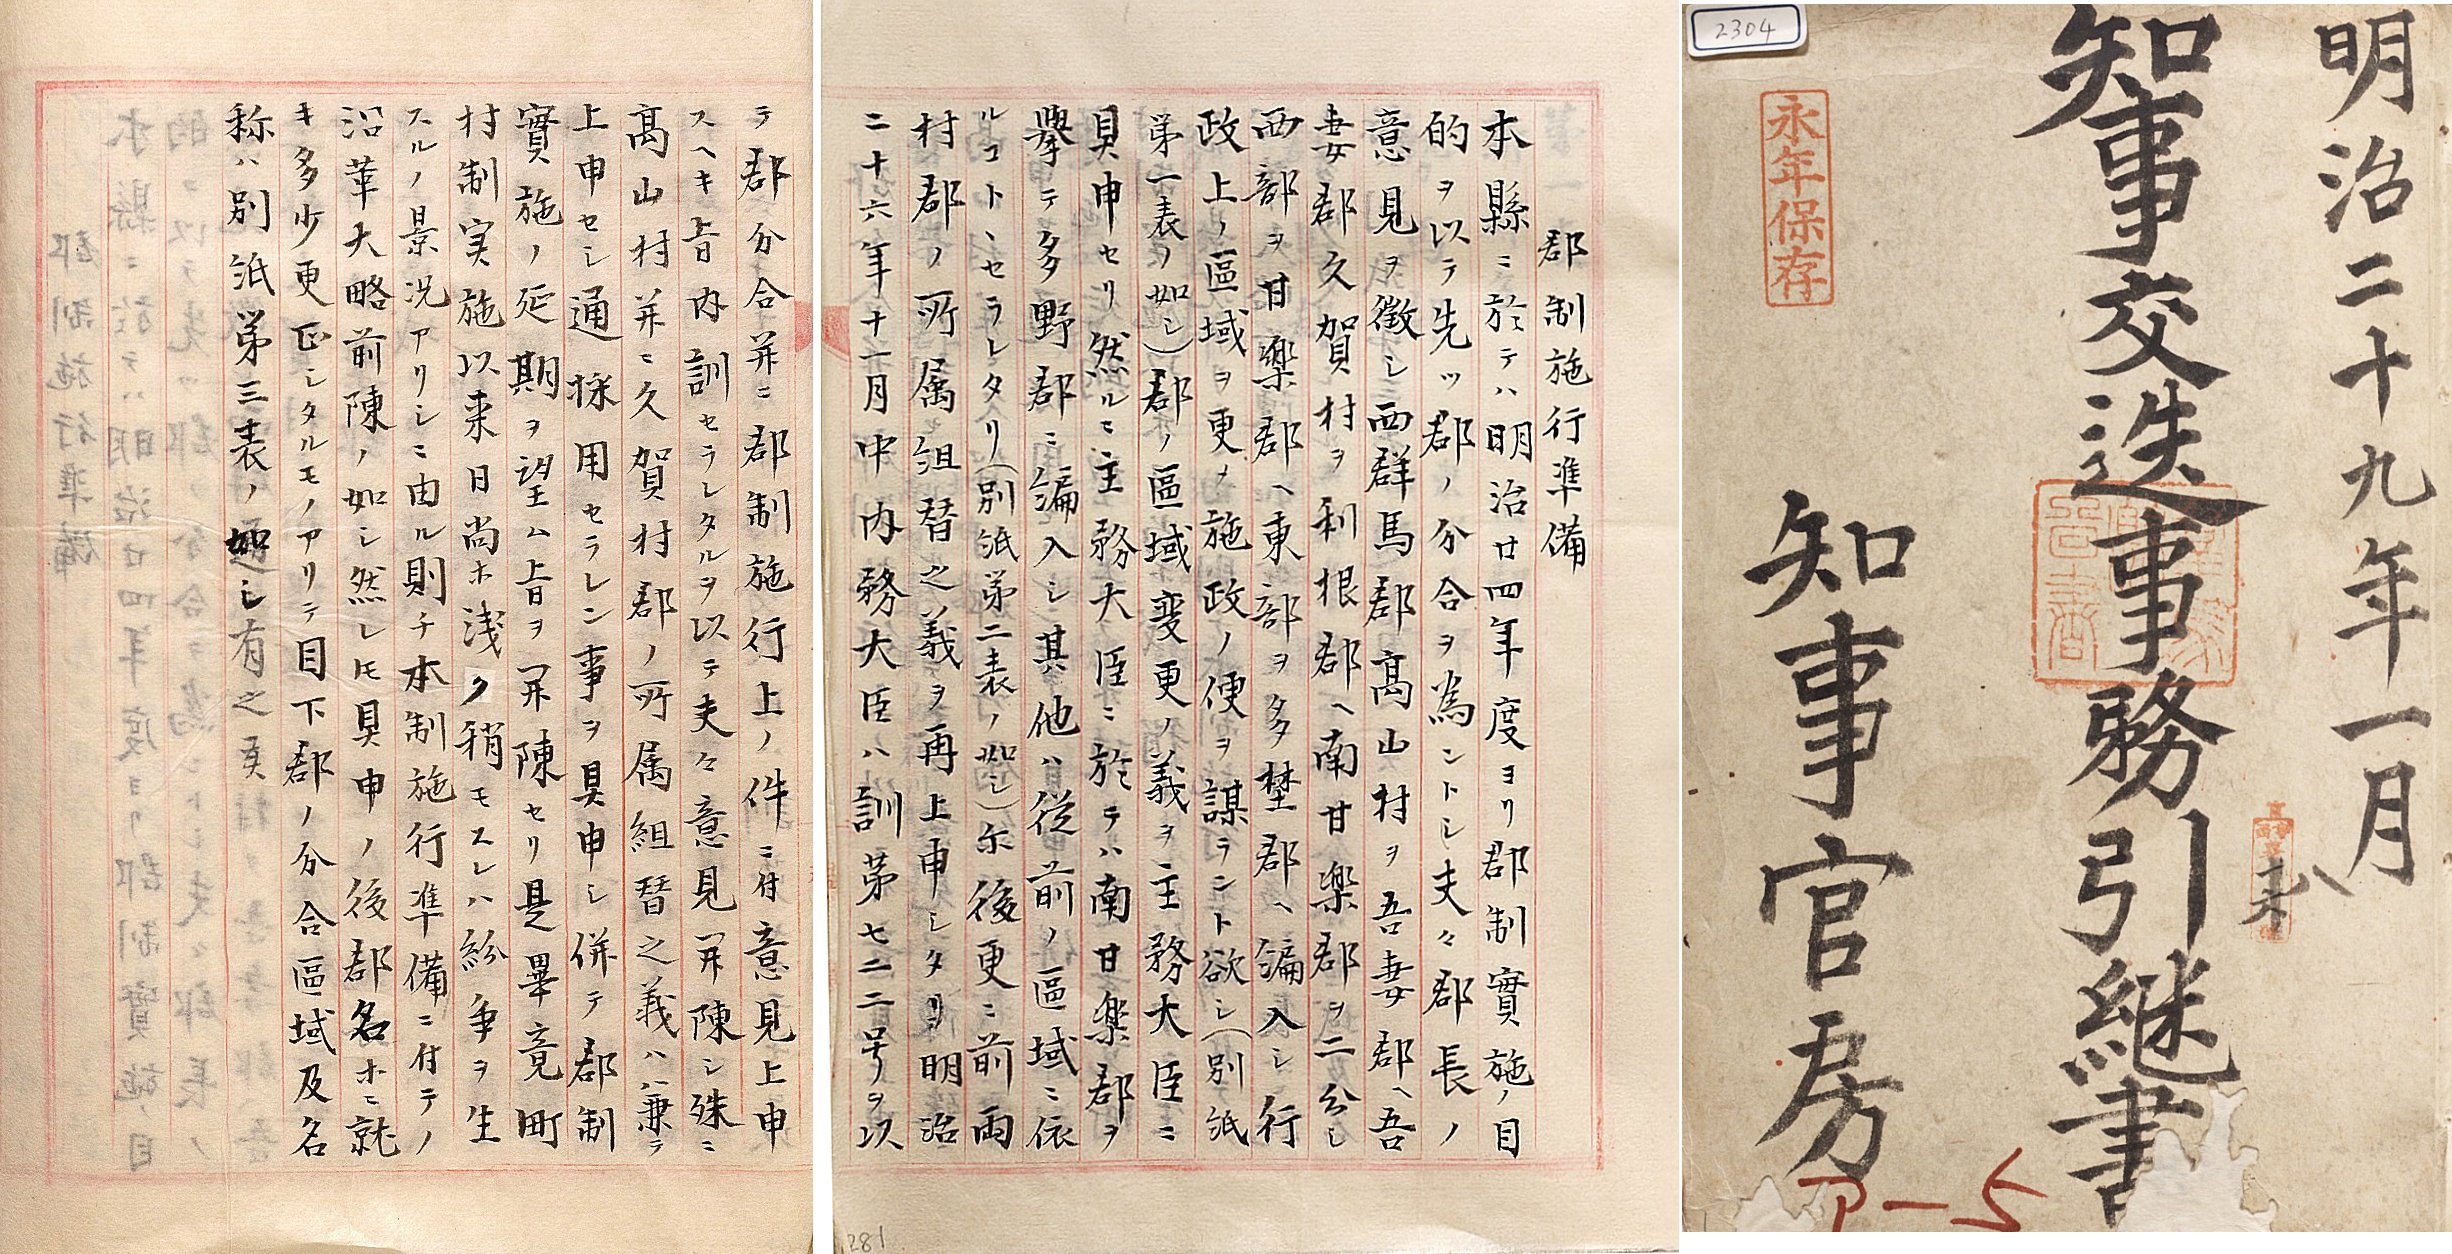 明治二十九年一月
知事交迭事務引継書
知事官房
永年保存
2304
P-5
郡制施行準備
本縣ニ於テハ明治廿四年度ヨリ郡制實施ノ目
的ヲ以テ先ツ郡ノ分合ヲ為ントシ夫々郡長ノ
意見ヲ徴シ西群馬郡髙山村ヲ吾妻郡ヘ吾
妻郡久賀村ヲ利根郡ヘ南甘楽郡ヲ二分シ
西部ヲ甘楽郡ヘ東部ヲ多埜郡ヘ編入シ行
政上ノ區域ヲ更メ施政ノ便ヲ謀ラント欲シ(別紙
第一表ノ如シ)郡ノ區域変更ノ義ヲ主務大臣ニ
具申セリ然ルニ主務大臣ニ於テハ南甘楽郡ヲ
擧テ多野郡ニ編入シ其他ハ従前ノ區域ニ依
ルコトヽセラレタリ(別紙第二表ノ如シ)尓後更ニ前両
村郡ノ所属組替之義ヲ再上申シタリ明治
二十六年十一月中内務大臣ハ訓第七二二号ヲ以
テ郡分合并ニ郡制施行上ノ件ニ付意見上申
スヘキ旨内訓セラレタルヲ以テ夫々意見開陳シ殊ニ
髙山村并ニ久賀村郡ノ所属組替之義ハ兼テ
上申セシ通採用セラレン事ヲ具申シ併テ郡制
實施ノ延期ヲ望ム旨ヲ開陳セリ是畢竟町
村制実施以来日尚ホ浅ク稍モスレハ紛争ヲ生
スルノ景况アリシニ由ル則チ本制施行準備ニ付テノ
沿革大略前陳ノ如シ然レ𪜈具申ノ後郡名ホニ就
キ多少更正シタルモノアリテ目下郡ノ分合區域及名
称ハ別紙第三表ノ如シ有之
281